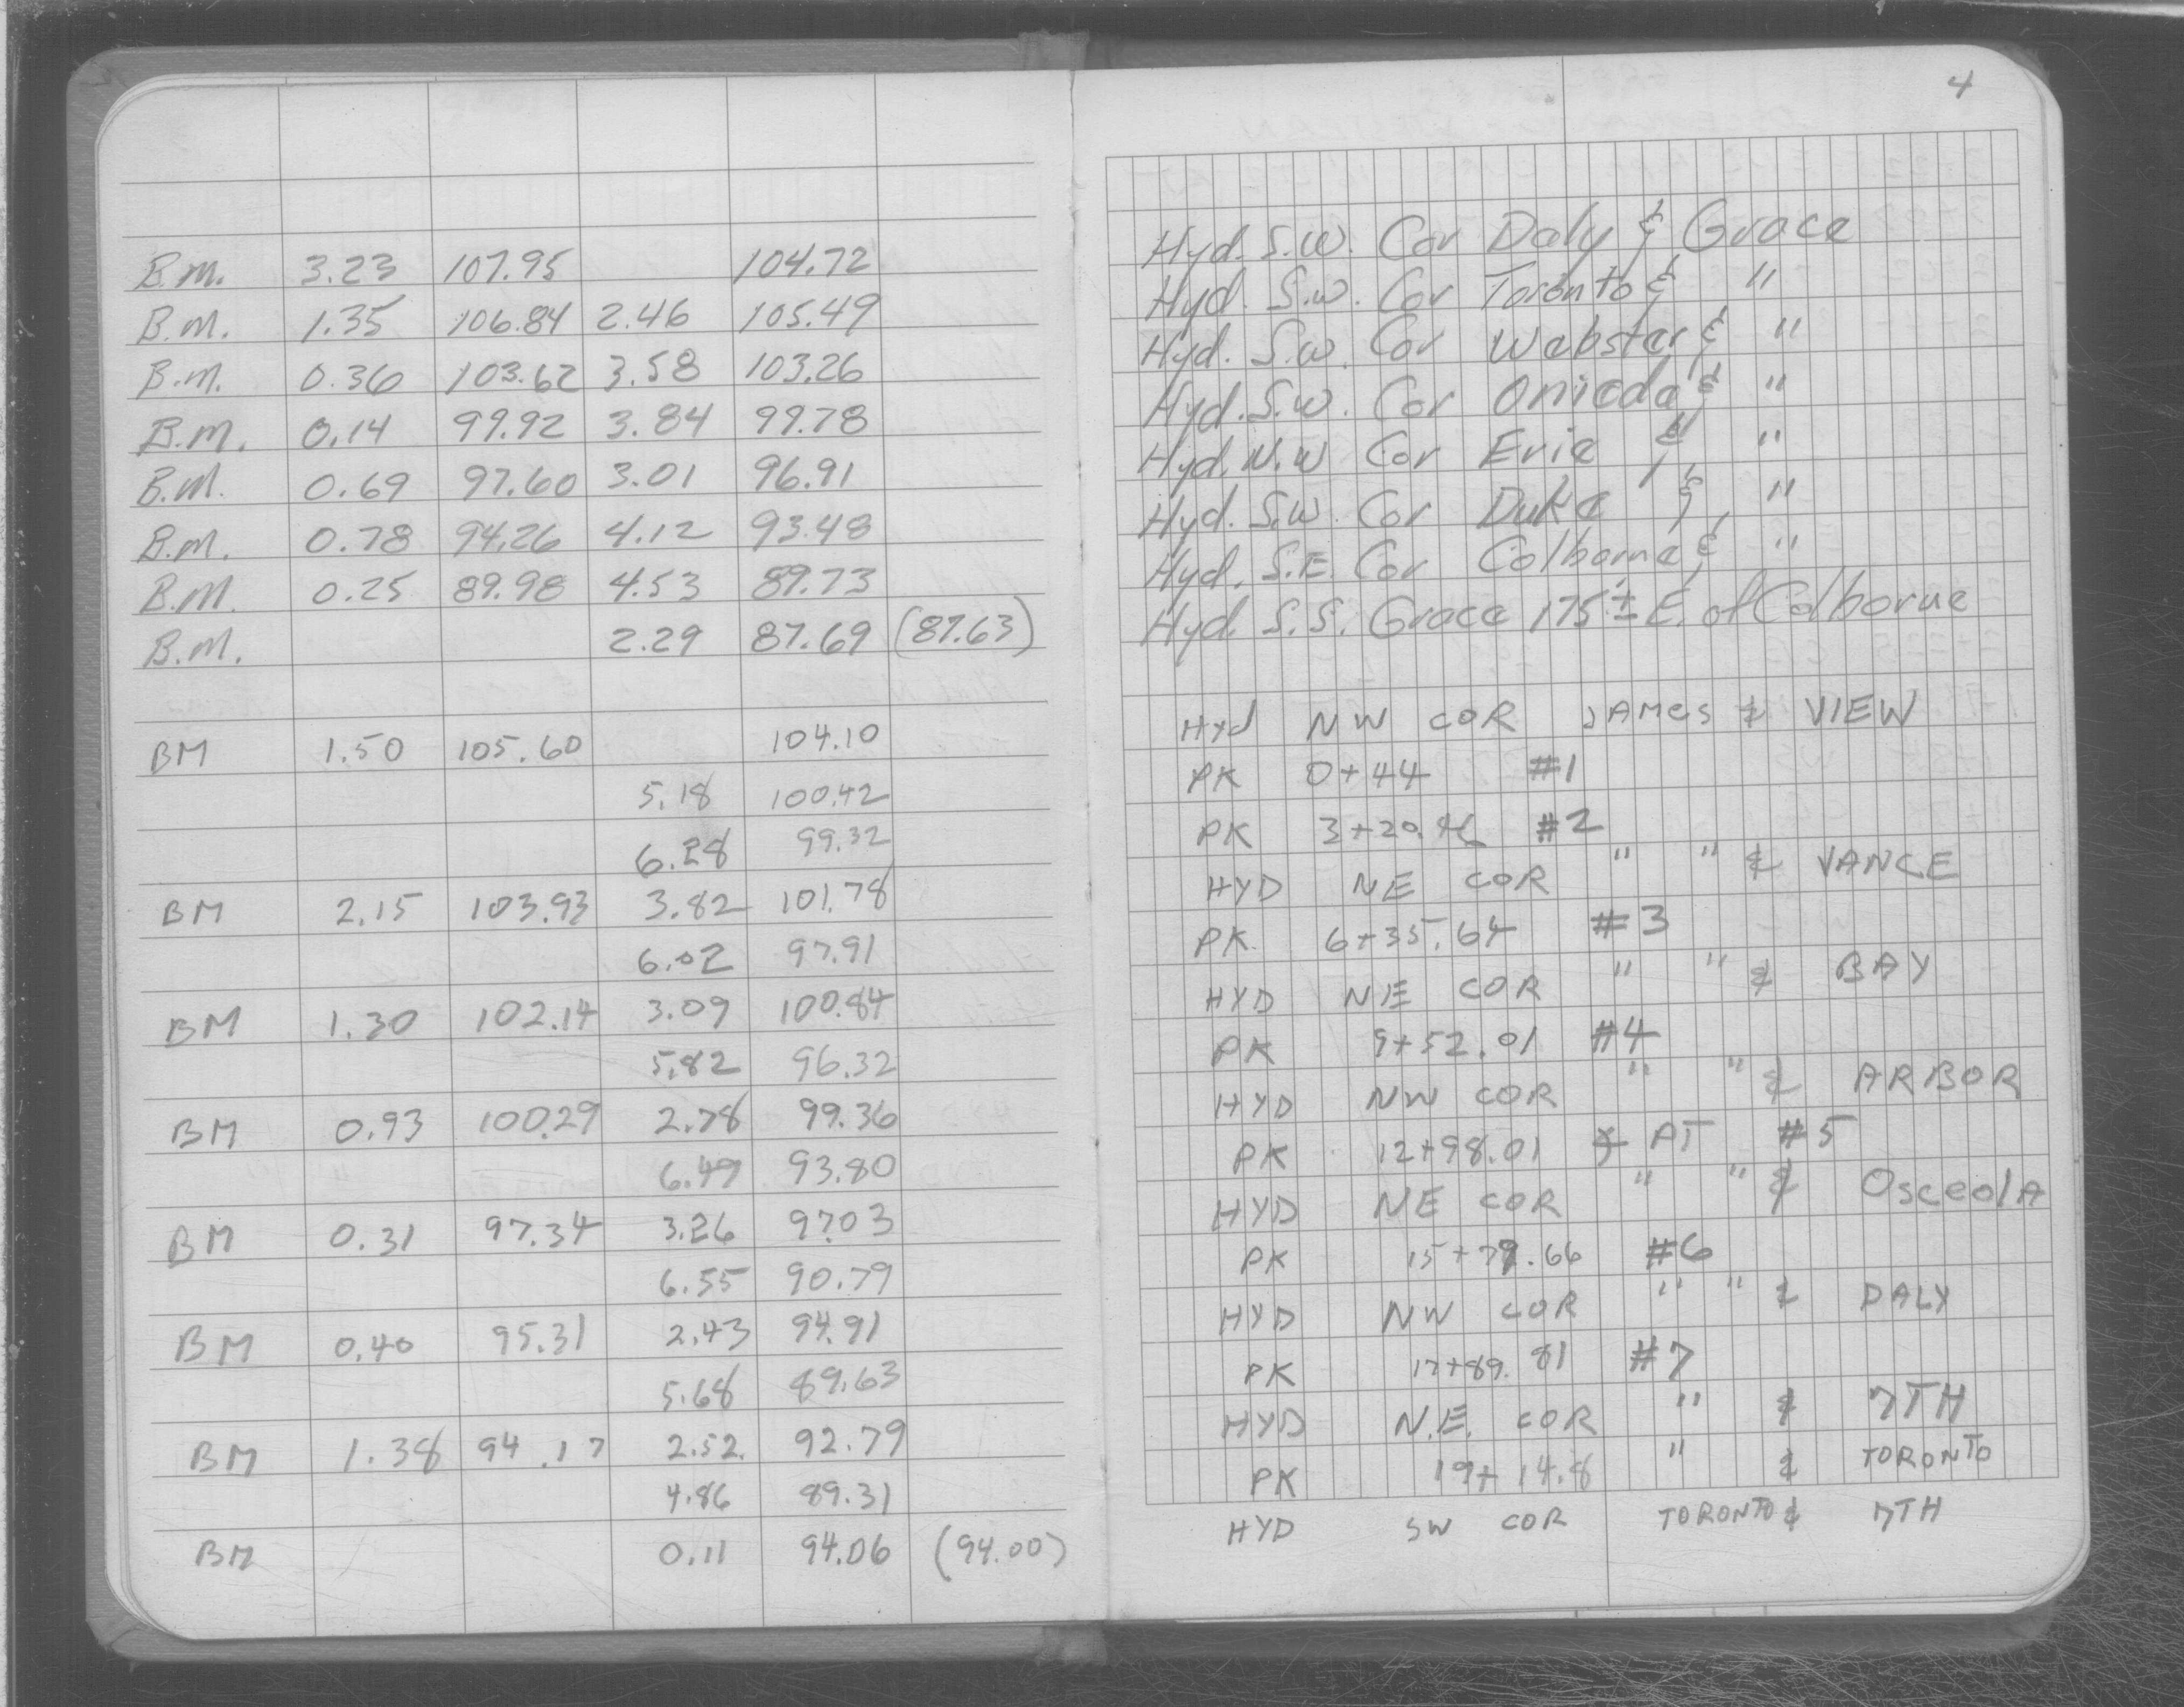 B.M. 3.23 107.95 104.72
B.M. 1.35 106.84 2.46 105.49
B.M. 0.36 103.62 3.58 103.26
B.M. 0.14 99.92 3.84 99.78
B.M. 0.69 97.60 3.01 96.91
B.M. 0.78 94.26 4.12 93.48
B.M. 0.25 89.98 4.53 89.73
B.M. 2.29 87.69 (87.63)
BM 1.50 105.60 104.10
5.18 100.42
6.28 99.32
BM 2.15 103.93 3.82 101.78
6.02 97.91
BM 1.30 102.14 3.09 100.84
5.82 96.32
BM 0.93 100.29 2.78 99.36
6.49 93.80
BM 0.31 97.34 3.26 97.03
6.55 90.79
BM 0.40 95.31 2.43 94.91
5.68 89.63
BM 1.38 94.17 2.52 92.79
4.86 89.31
BM 0.11 94.06 (94.00)
4
Hyd. S.W. Cor Daly & Grace
Hyd. S.W. Cor Toronto & "
Hyd. S.W. Cor Webster & "
Hyd. S.W. Cor Onieda & "
Hyd. N.W Cor Erie & "
Hyd. S.W. Cor Duke & "
Hyd. S.E. Cor Colborne & "
Hyd. S.S. Grace 175'± E. of Colborne
Hyd NW COR JAMES & VIEW
PK 0+44 #1
PK 3+20. #2
HYD NE COR " " & VANCE
PK 6+35.64 #3
HYD NE COR " " & BAY
PK 9+52.01 #4
HYD NW COR " " & ARBOR
PK 12+98.01 AT #5
HYD NE COR " " & OsceolA
PK 15+79.66 #6
HYD NW COR " " & DALY
PK 17+89.81 #7
HYD N.E. COR " & 7TH
PK 19+14.8 " & TORONTO
HYD SW COR TORONTO & 7TH